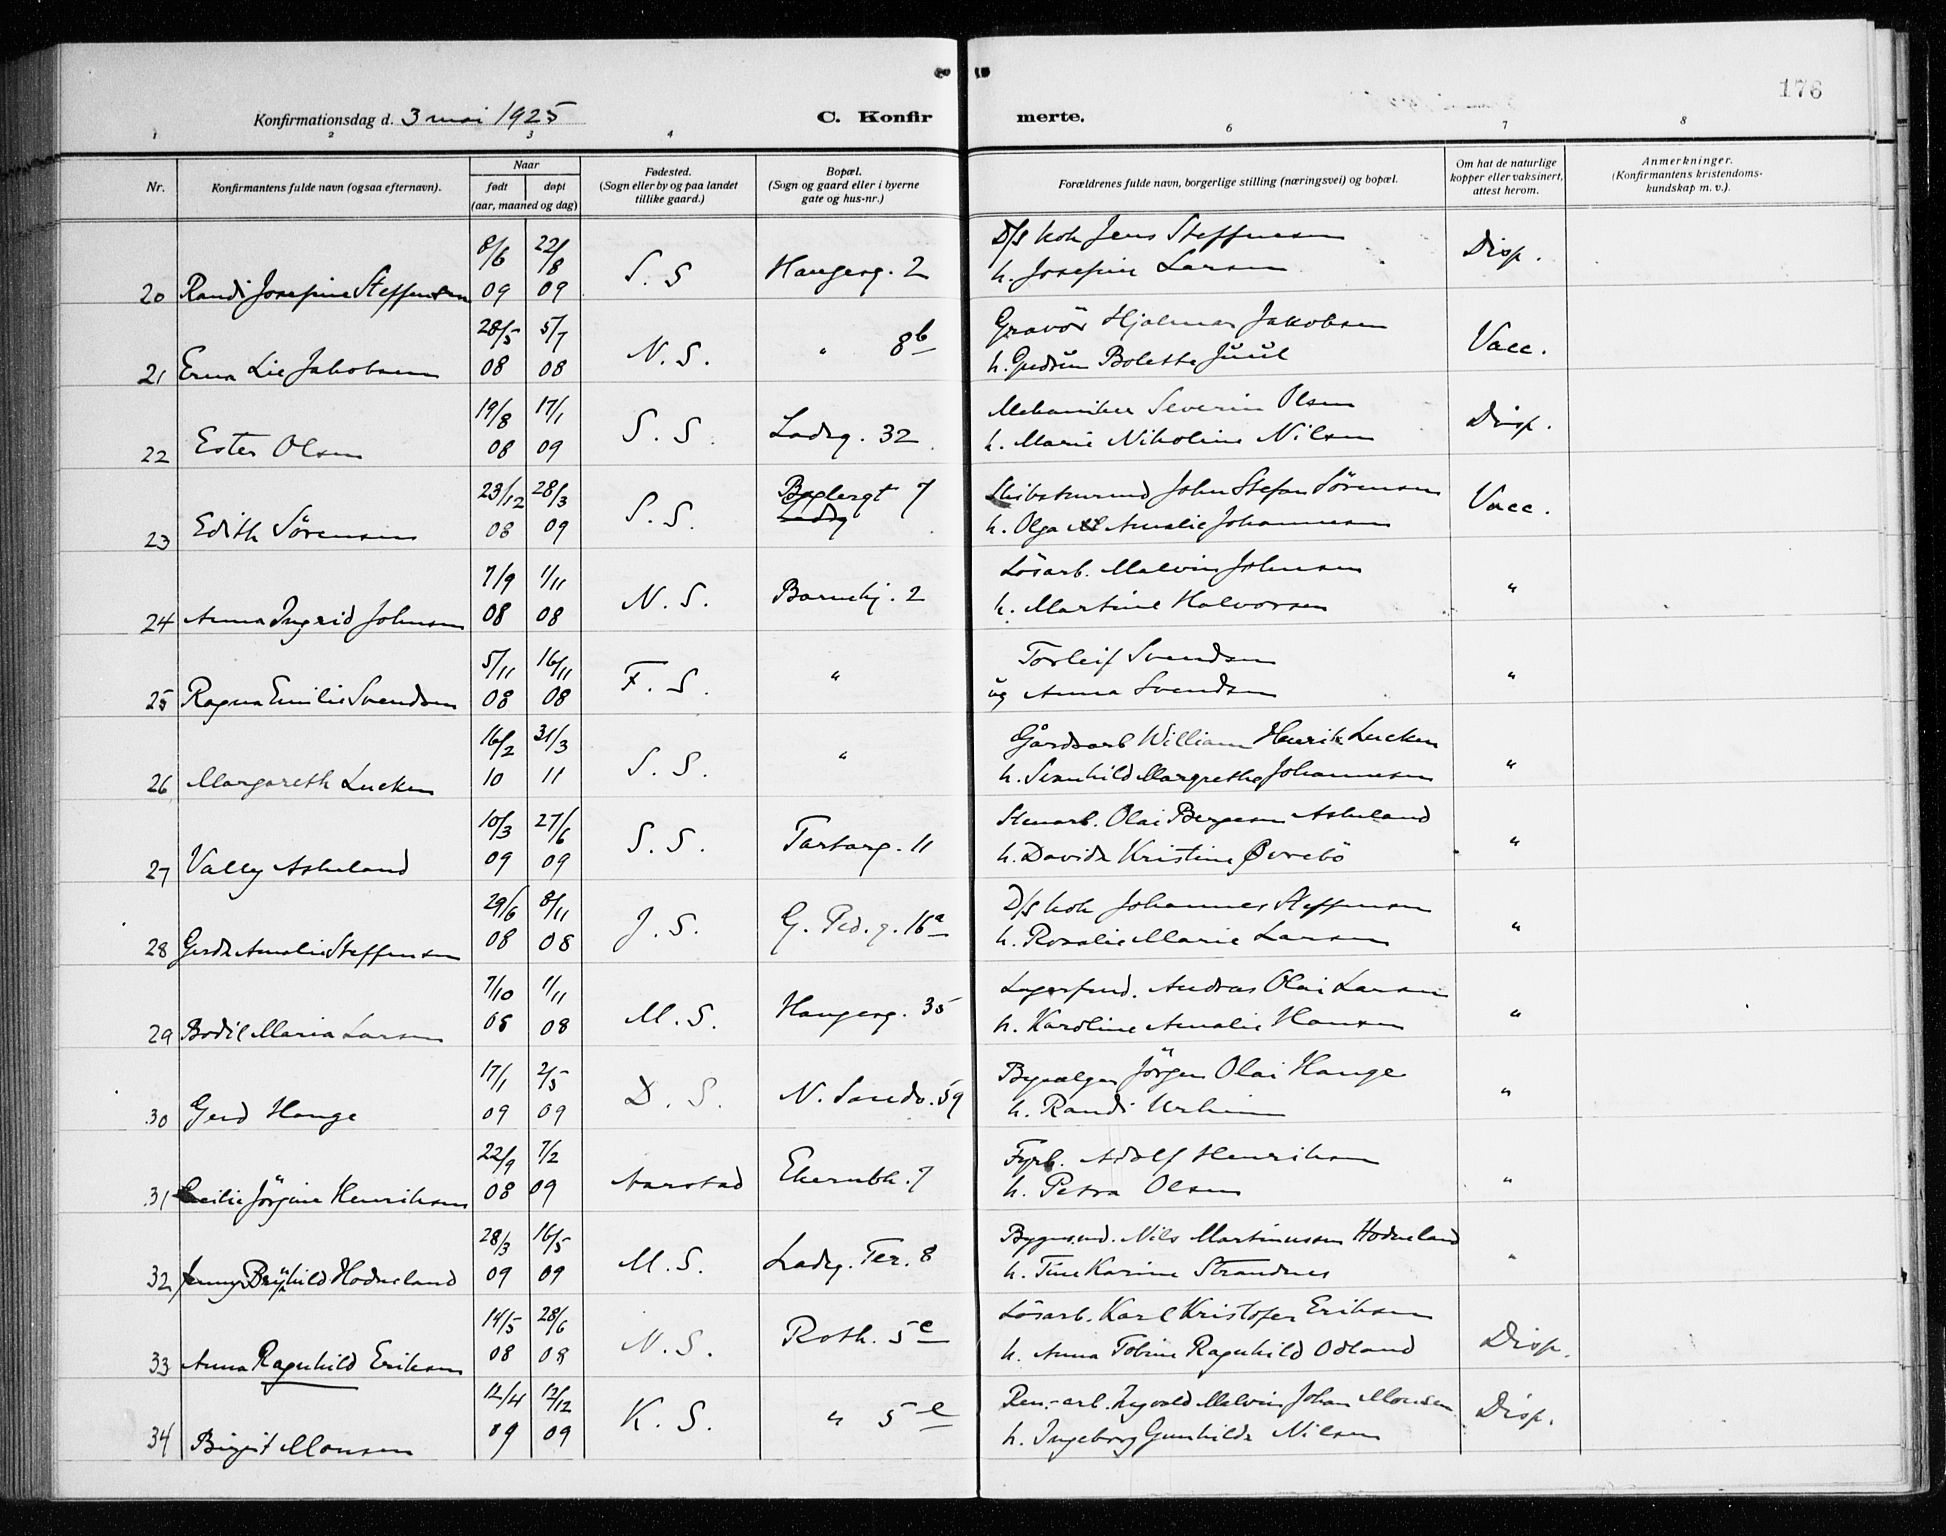 176
Konfirmationsdag d. 3 mai 1925 C. Konfir merte.
1 2 3 4 6 7 8
Nr.
Konfirmantens fulde navn (ogsaa efternavn).
Naar
født døpt
(aar, maaned og dag)
Fødested.
(Sogn eller by og paa landet
tillike gaard.)
Bopæl.
(Sogn og gaard eller i byerne
gate og hus-nr.)
Forældrenes fulde navn, borgerlige stilling (næringsvei) og bopæl.
Om hat de naturlige
kopper eller vaksinert,
attest herom.
Anmerkninger.
(Konfirmantens kristendoms-
kundskap m. v.).
8/6 22/8 D/s kok Jens Steffensen
20 Randi Josefine Steffensen 09 09 S. S Haugeg. 2 h. Josefine Larsen Disp.
28/5 5/7 Gravör Hjalmar Jakobsen
21 Erna Lie Jakobsen 08 08 N. S. " 8b h. Gudrun Bolette Juul Vacc.
19/8 17/1 Mekaniker Severin Olsen
22 Ester Olsen 08 09 S. S. Ladeg. 32 h. Marie Nikoline Nilsen Disp.
23/12 28/3 Baglergt 7 John Stefan Sörensen
23 Edith Sörensen 08 09 S. S. Ladeg h. Olga Amalie Johannesen Vacc.
7/9 1/11 Lösarb. Malvin Johnsen
24 Anna Ingrid Johnsen 08 08 N. S. Barnehj. 2 h. Martine Halvorsen "
5/11 16/11 Torleif Svendsen
25 Ragna Emilie Svendsen 08 08 F. S. " og Anna Svendsen "
16/2 31/3 Gårdsarb William Henrik Lucken
26 Margareth Lucken 10 11 S. S. " h. Svanhild Margrethe Johannesen "
10/3 27/6 Stenarb. Olai Bergesen Askeland
27 Vally Askeland 09 09 S. S. Tartarg. 11 h. Davida Kristine Øvrebö "
29/6 8/11 D/s kok Johannes Steffensen
28 Gerda Amalie Steffensen 08 08 J. S. G. Ped. g. 16a h. Rosalie Marie Larsen "
7/10 1/11 Lagerfmd. Andreas Olai Larsen
29 Bodil Maria Larsen 08 08 M. S. Haugeg. 35 h. Karoline Amalie Hansen "
17/1 2/5 Jörgen Olai Hauge
30 Gerd Hauge 09 09 D. S. N. Sandv. 59 h. Randi "
22/9 7/2 Fyrb. Adolf Henriksen
31 Cecilie Jörgine Henriksen 08 09 Aarstad Ekernbk. 7 h. Petra Olsen "
28/3 16/5 Bygmsmd. Nils Martinussen Hodneland
32 Jenny Brynhild Hodneland 09 09 M. S. Ladeg. Ter. 8 h. Tine Karine Strandnes "
14/5 28/6 Lösarb. Karl Kristofer Eriksen
33 Anna Ragnhild Eriksen 08 08 N. S. Roth. 5c h. Anna Tobine Ragnhild Odland Disp.
12/4 12/12 Ren.-arb. Ingvald Malvin Johan Monsen
34 Birgit Monsen 09 09 K. S. " 5e h. Ingeborg Gunhilda Nilsen Disp.